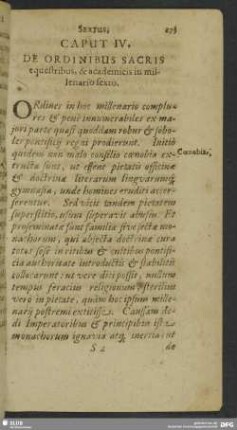 SEXTUS.
CAPUT IV.
DE ORDINIBUS SACRIS
equestribus, & academicis in mil-
lenario sexto.
ORdines in hoc millenario complu-
res & penè innumerabiles ex ma-
jori parte quasi quoddam robur & sobo-
les pontificij regni prodierunt. Initiò
quidem non malo consilio cœnobia ex-
tructa sunt, ut essent pietatis officinæ
& doctrinæ literarum linguarumq;
gymnasia, unde homines eruditi accer-
serentur. Sed vicit tandem pietatem
superstitio, usum superavit abusus. Et
proseminatæ sunt familiæ sive sectæ mo-
nachorum, qui abjecta doctrinæ cura
totos sese in ritibus & cultibus pontifi-
cia authoritate introductis & stabilitis
collocarunt: ut verè dici possit, nullum
tempus feracius religionum, sterilius
verò in pietate, quàm hoc ipsum mille-
narij postremi extitisse. Caussam de-
di Imperatoribus & principibus istæ
monachorum ignavia atq; inertia, ut
S 2 de
Cœnobia.
273
SLUB
DFG